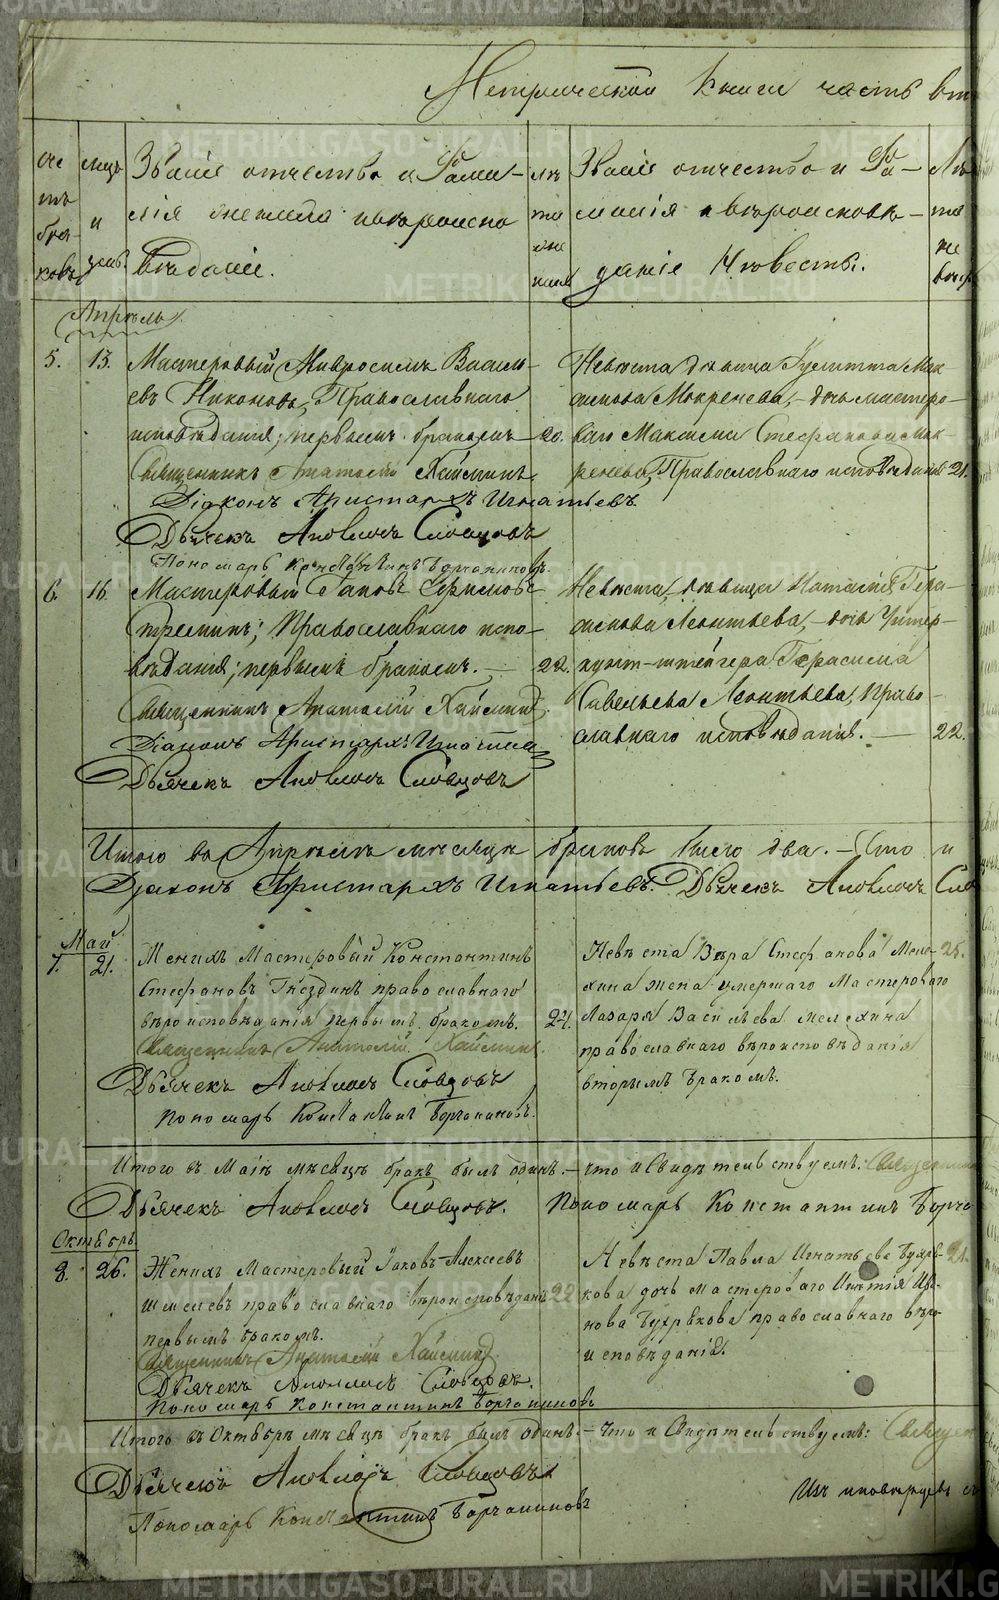 METRIKI.GASO-URAL.RU
Метрической Книги часть вт
Сче
тъ
бра-
ковъ
мцъ
и
день.
Званіе отчество и Фами-
лія жениха и вѣроиспо
вѣданіе.
лѣ
та
же
ниха
Званіе отчество и Фа-
милія и вѣроисповѣ-
даніе Невесты.
Лѣ
та
не
вѣс
Апрѣль.
5. 13. Мастеровый Амвросимъ Василь-
евъ Никоновъ, Православнаго
исповѣданія, первымъ бракомъ 20.
Священникъ Анатолій Хайминъ
Діаконъ Аристархъ Игнатьевъ.
Дьячекъ Аполлосъ Словцовъ
Пономарь Константинъ Борчаниновъ.
Невѣста девица Гулитта Мак-
симова Мокрецева, дочь мастеро-
ваго Максима Стефанова Мок-
рецева, Православнаго исповѣданія 21.
6. 16. Мастеровый Іаковъ Ефимовъ
Православнаго испо-
вѣданія; первымъ бракомъ. — 22.
Священникъ Анатолій Хайминъ.
Діаконъ Аристархъ Игнатьев
Дьячекъ Аполлосъ Словцовъ
Невѣста, дѣвица Наталія Гера-
симова Леонтьева, дочь Унтер-
шейгера Герасима
Савельева Леонтьева, Право-
славнаго исповѣданія. — 22.
Итого въ Апрѣлѣ мѣсяцѣ браковъ было два. — Что и
Діаконъ Аристархъ Игнатьевъ. Дьячекъ Аполлосъ Сло
Май
7. 21. Женихъ Мастеровый Константинъ
Стефановъ Гнѣздинъ православнаго
вѣроисповѣданія первымъ бракомъ. 24.
Священникъ Анатолій Хайминъ.
Дьячекъ Аполлосъ Словцовъ
Пономарь Константинъ Борчаниновъ.
Невѣста Вѣра Стефанова Меле- 25.
хина жена умершаго Мастероваго
Лазаря Васильева Мелехина
православнаго вѣроисповѣданія
вторымъ бракомъ.
Итого въ Маіѣ мѣсяцѣ бракъ былъ одинъ. — что и Свидѣтельствуемъ: Священник
Дьячекъ Аполлосъ Словцовъ. Пономарь Константинъ Борча
Октябрь
8. 26. Женихъ Мастеровый Іаковъ Алексеевъ
Шмелевъ православнаго вѣроисповѣданія 22
первымъ бракомъ.
Священникъ Анатолій Хайминъ.
Дьячекъ Аполлосъ Словцовъ.
Пономарь Константинъ Борчаниновъ
Невѣста Павла Игнатьева Бухря- 21.
кова дочь мастероваго Игнатія Ива-
нова Бухрякова православнаго вѣро-
исповѣданія.
Итого въ Октябрѣ мѣсяцѣ бракъ былъ одинъ. — Что и Свидѣтельствуемъ: Священ
Дьячекъ Аполлосъ Словцовъ
Изъ иноверцевъ
Пономарь Константинъ Борчаниновъ